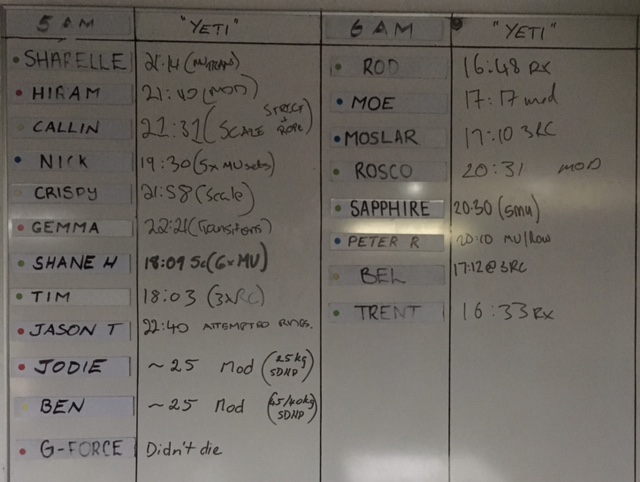 5 AM "YETI" 6 AM "YETI"
SHARELLE 21:14
HIRAM 21:40 (MOD)
CALLIN 21:31 (SCALE STRICT + ROPE)
NICK 19:30 (5x MU sets)
CRISPY 21:58 (Scale)
GEMMA 22:21 (Transitions)
SHANE H 18:09 Sc (6x MU)
TIM 18:03 (3xRC)
JASON T 22:40 ATTEMPTED RINGS.
JODIE ~25 Mod (25kg SDHP)
BEN ~25 Mod (45/40kg SDHP)
G-FORCE Didn't die
ROD 16:48 RX
MOE 17:17 mod
MOSLAR 17:10 3RC
ROSCO 20:31 MOD
SAPPHIRE 20:30 (5mu)
PETER R 20:10 MU/Row
BEL 17:12 @ 3RC
TRENT 16:33 RX